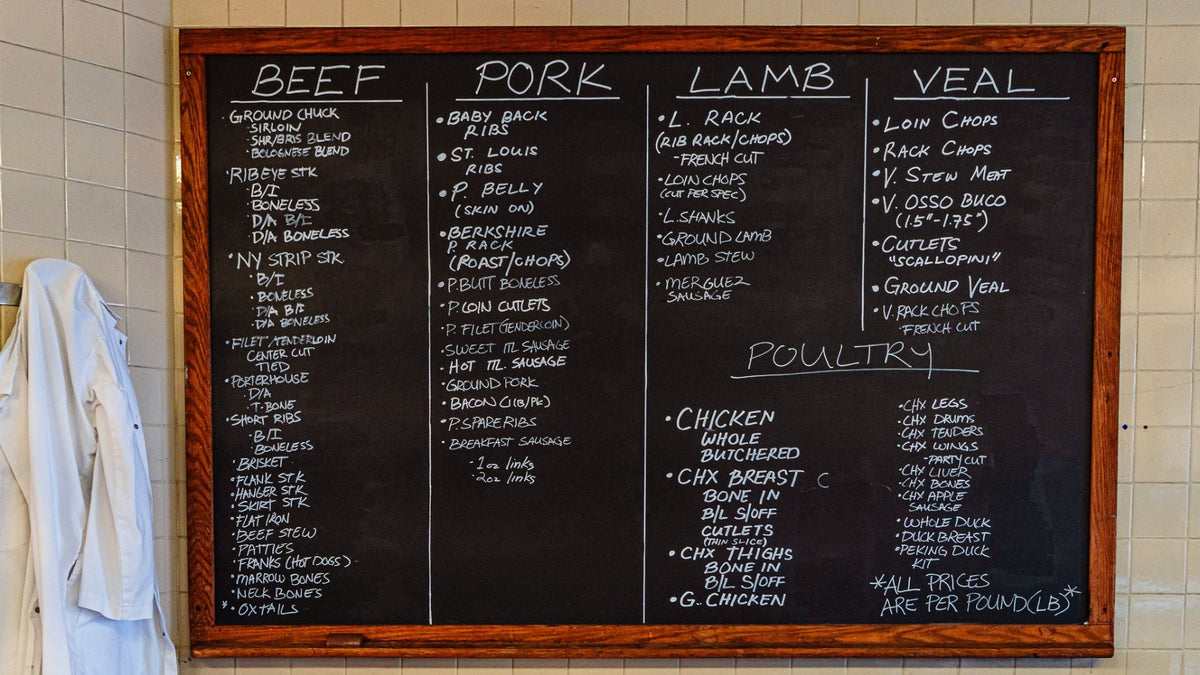 BEEF
· GROUND CHUCK
· SIRLOIN
· SHR/BRIS BLEND
· BOLOGNESE BLEND
· RIBEYE STK
· B/I
· BONELESS
· D/A B/I
· D/A BONELESS
· NY STRIP STK
· B/I
· BONELESS
· D/A B/I
· D/A BONELESS
· FILET/TENDERLOIN
CENTER CUT
TIED
· PORTERHOUSE
· D/A
· T-BONE
· SHORT RIBS
· B/I
· BONELESS
· BRISKET
· FLANK STK
· HANGER STK
· SKIRT STK
· FLAT IRON
· BEEF STEW
· PATTIES
· FRANKS (HOT DOGS)
· MARROW BONES
· NECK BONES
* · OXTAILS
PORK
· BABY BACK
RIBS
· ST. LOUIS
RIBS
· P. BELLY
(SKIN ON)
· BERKSHIRE
P. RACK
(ROAST/CHOPS)
· P. BUTT BONELESS
· P. LOIN CUTLETS
· P. FILET (TENDERLOIN)
· SWEET ITL SAUSAGE
· HOT ITL SAUSAGE
· GROUND PORK
· BACON (1LB/PK)
· P. SPARERIBS
· BREAKFAST SAUSAGE
- 1oz links
- 2oz links
LAMB
· L. RACK
(RIB RACK/CHOPS)
- FRENCH CUT
· LOIN CHOPS
(CUT PER SPEC)
· L. SHANKS
· GROUND LAMB
· LAMB STEW
· MERGUEZ
SAUSAGE
VEAL
· LOIN CHOPS
· RACK CHOPS
· V. STEW MEAT
· V. OSSO BUCO
(1.5"-1.75")
· CUTLETS
"SCALLOPINI"
· GROUND VEAL
· V. RACK CHOPS
· FRENCH CUT
POULTRY
· CHICKEN
WHOLE
BUTCHERED
· CHX BREAST C
BONE IN
B/L S/OFF
CUTLETS
(THIN SLICE)
· CHX THIGHS
BONE IN
B/L S/OFF
· G. CHICKEN
· CHX LEGS
· CHX DRUMS
· CHX TENDERS
· CHX WINGS
- PARTY CUT
· CHX LIVER
· CHX BONES
· CHX APPLE
SAUSAGE
· WHOLE DUCK
· DUCK BREAST
· PEKING DUCK
KIT
*ALL PRICES
ARE PER POUND(LB)*